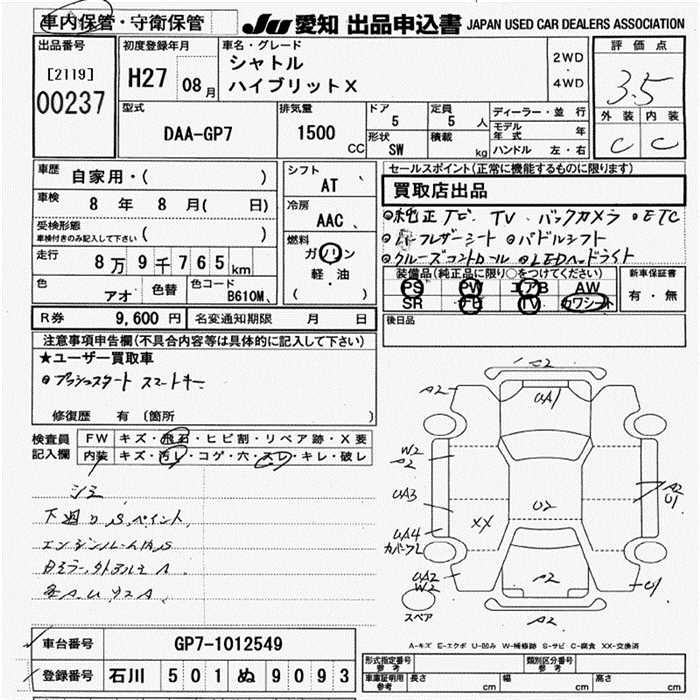 車内保管・守衛保管
JU 愛知 出品申込書 JAPAN USED CAR DEALERS ASSOCIATION
出品番号
[2119]
00237
初度登録年月
H27 08月
車名・グレード
シャトル
ハイブリットX
2WD
・
4WD
評価点
3.5
外装 内装
C C
型式
DAA-GP7
排気量
1500 CC
ドア
5
定員
5 人
形状
SW
積載
kg
ディーラー・並行
モデル年式 年
ハンドル 左・右
車歴
自家用・( )
車検
8 年 8 月( 日)
受検形態
車検付きのみ記入して下さい ( )
走行
8万9千765km
色
アオ
色替
色コード
B610M、
シフト
AT 、
冷房
AAC、
燃料
ガソリン
軽・油
( )
セールスポイント(正常に機能するものに限ります)
買取店出品
純正ナビ、TV、バックカメラ ETC
ハーフレザーシート パドルシフト
クルーズコントロール LEDヘッドライト
装備品(純正品に限り○をつけてください)
PS PW エアB AW
SR ナビ TV カワシート
新車保証書
有・無
後日品
R券 9,600円 名変通知期限 月 日
注意事項申告欄(不具合内容等は具体的に記入して下さい)
★ユーザー買取車
プッシュスタート スマートキー
修復歴 有 〔箇所 〕
検査員
記入欄
FW キズ・飛石・ヒビ割・リペア跡・X要
内装 キズ・汚レ・コゲ・穴・スレ・キレ・破レ
シミ
下廻りS、ペイント
エンジンルーム内S
A2
A2
UA1
W2
A2
UA3
XX
U2
A2
U1
UA4
カバーワレ
UA2
W2
A2
U1
A2
スペア
A-キズ E-エクボ U-凹み W-補修跡 S-サビ C-腐食 XX-交換済
車台番号 GP7-1012549
登録番号 石川 501 ぬ 9093
形式指定番号
参考
類別区分番号
参考
車庫証明用
参考
長さ cm 幅 cm 高さ cm